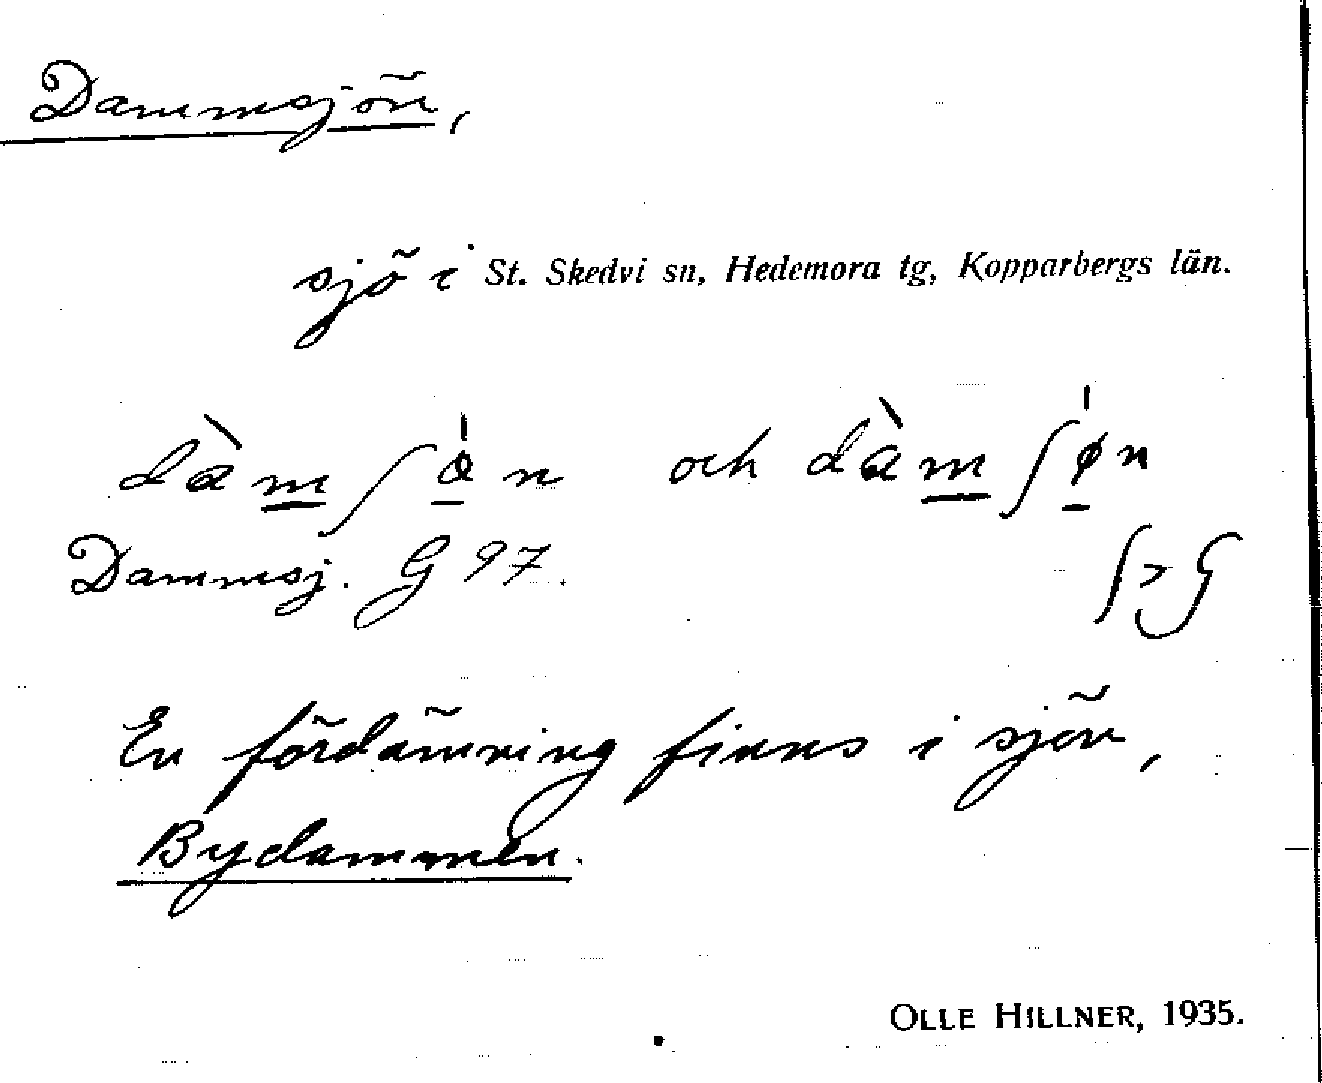 Dammsjön,
sjö i St. Skedvi sn, Hedemora tg, Kopparbergs län.
dàm̲ʃò̲n och dàm̲ʃø̲̍n
Dammsj. G 97. ʃ>G
En fördämning finns i sjön,
Bydammen.
OLLE HILLNER, 1935.